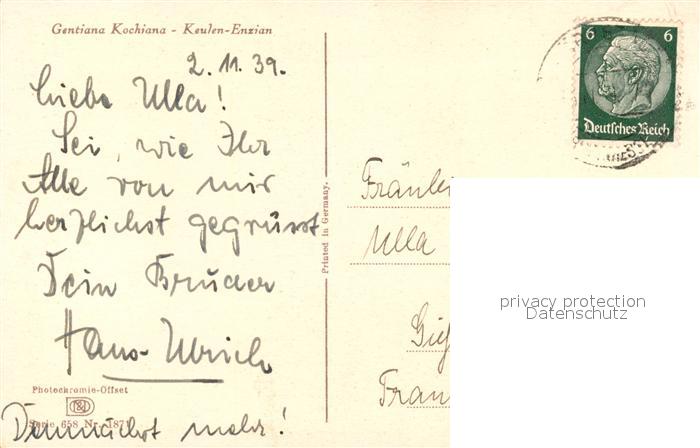 Gentiana Kochiana - Keulen-Enzian
2. 11. 39.
Liebe Ulla!
Sei, wie Ihr
Alle von mir
herzlichst gegrüsst
Dein Bruder
Hans-Ulrich
Demnächst mehr!
Photochromie-Offset
Serie 658 Nr. 1871
Printed in Germany.
6 6
Deutsches Reich
Fräulei
Ulla
Gieß
Fran
privacy protection
Datenschutz